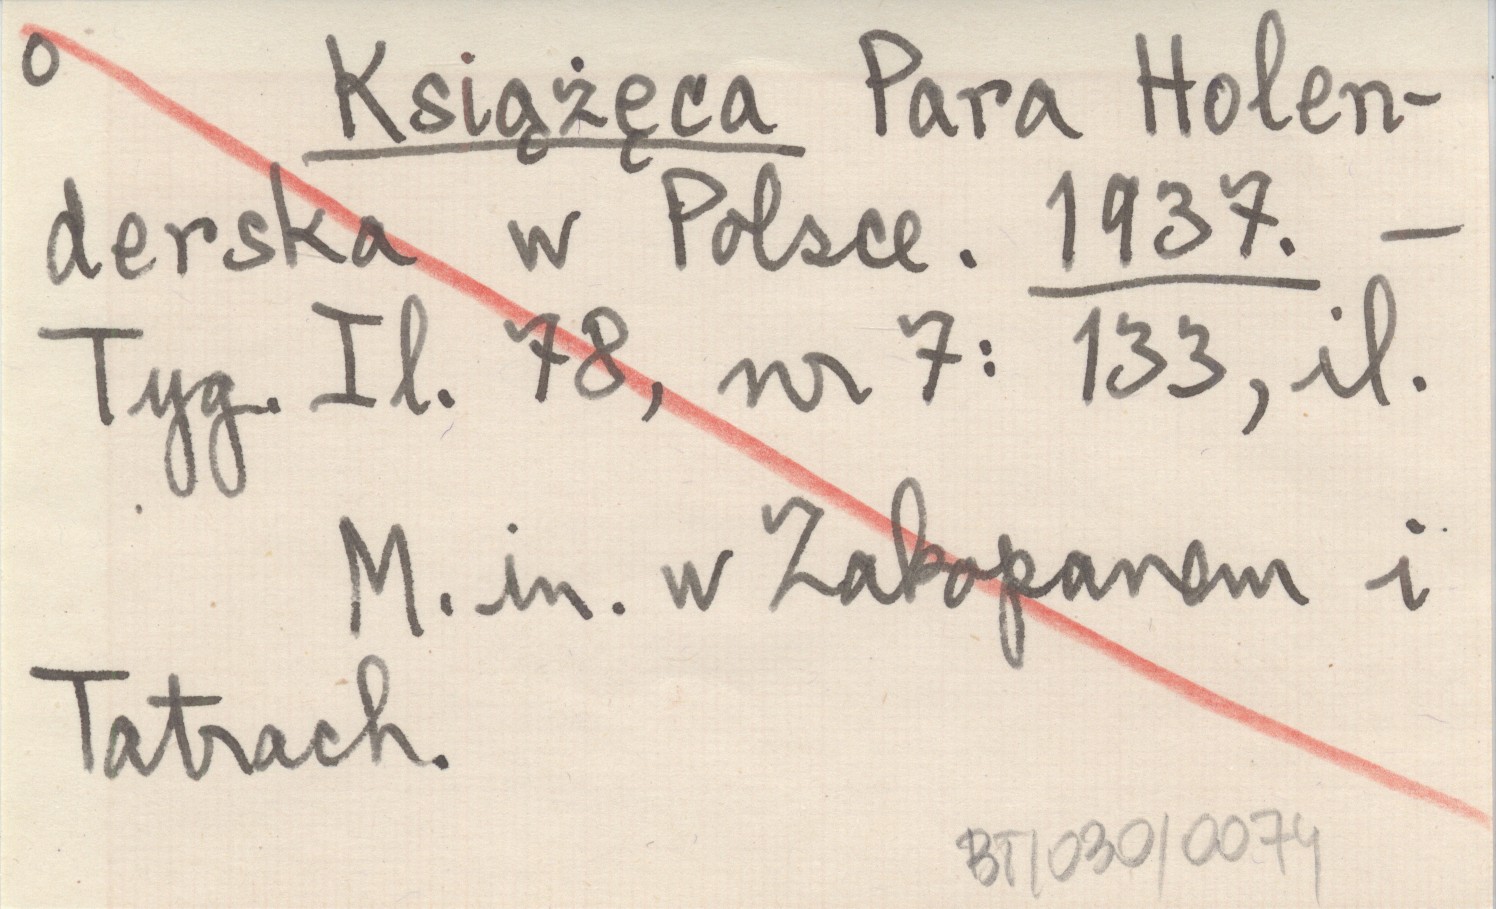 o Książęca Para Holen-
derska w Polsce. 1937. —
Tyg. Il. 78, nr 7: 133, il.
M. in. w Zakopanem i
Tatrach.
BT/030/0074